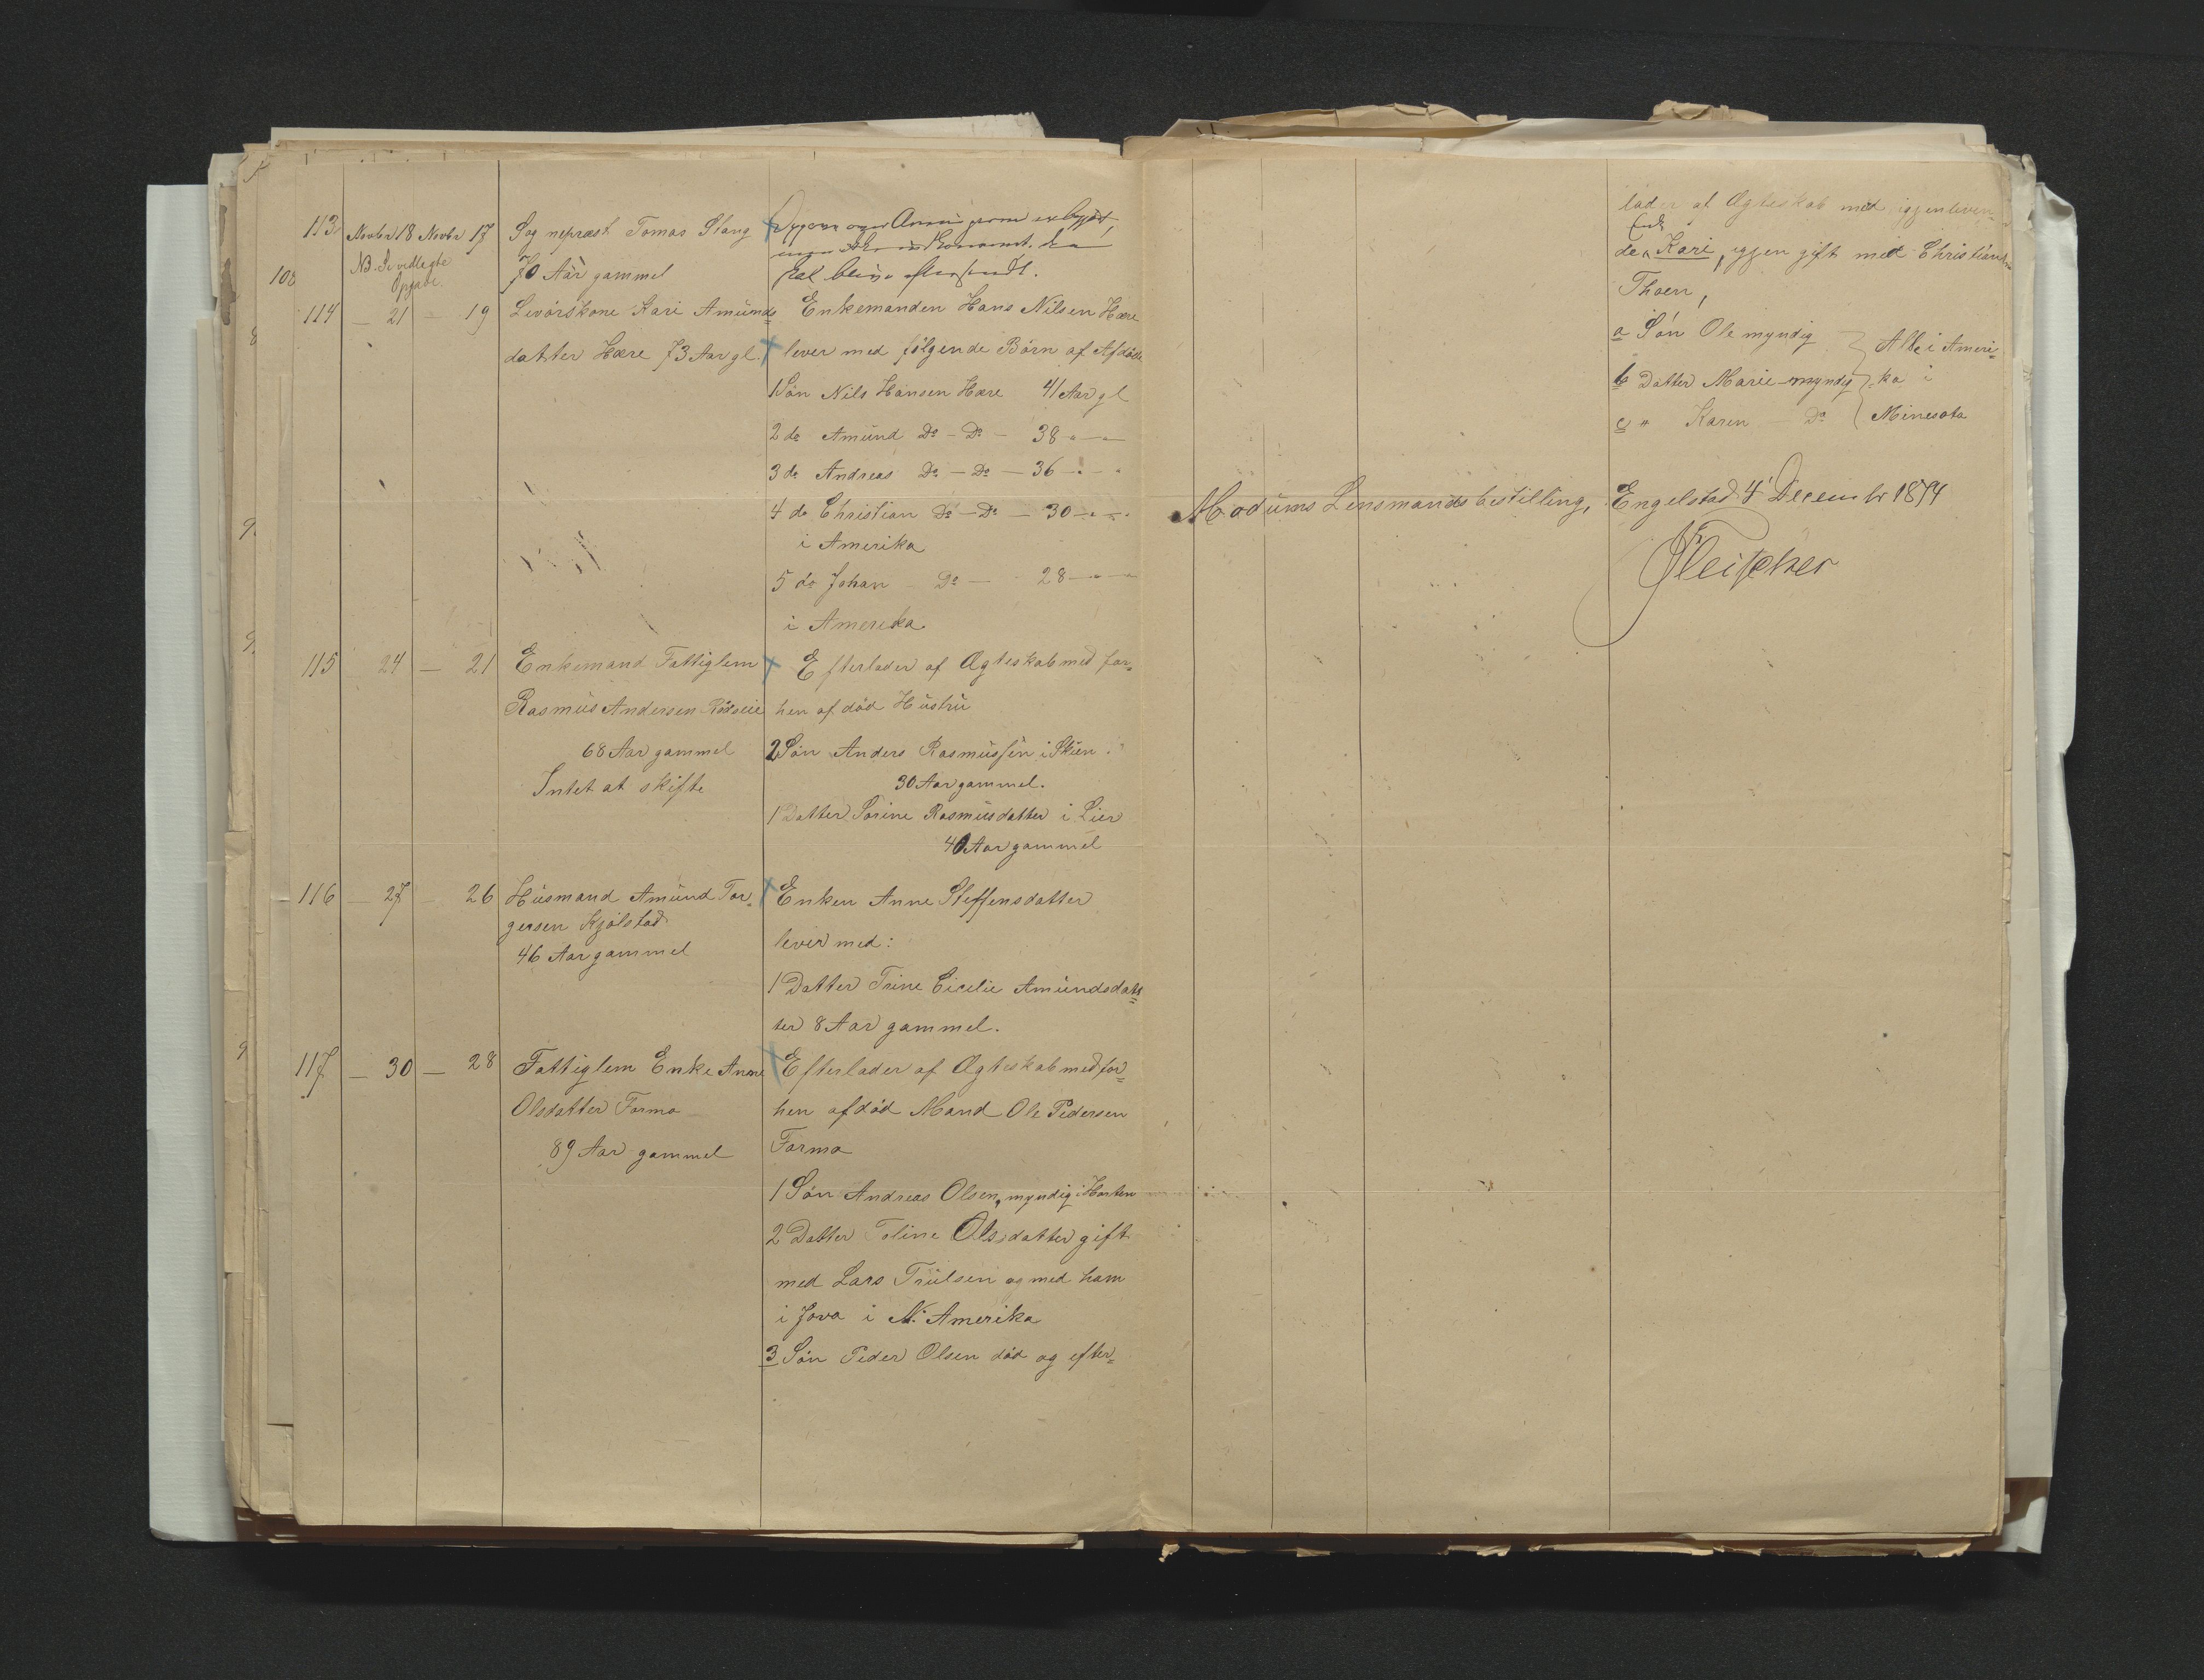 113 Novbr 18 Novbr 17 Sognepræst Tomas Stang
NB. Se vedlagte
Opgave.
70 Aar gammel
Opgave over
skal blive eftersendt.
108
114 — 21 — 19 Levørskone Kari Amunds=
datter Hære 73 Aar gl.
Enkemanden Hans Nilsen Hære
lever med følgende Børn af Afdøde
1 Søn Nils Hansen Hære 41 Aar gl
2 do Amund Do — Do — 38 — " —
3 do Andreas Do — Do — 36 — " — "
4 do Christian Do — Do — 30 — " — "
i Amerika
5 do Johan — Do — 28 — " —
i Amerika
115 24 — 21 Enkemand Fattiglem
Rasmus Andersen
68 Aar gammel
Intet at skifte
Efterlader af Ægteskab med for=
hen afdød Hustru
2 Søn Anders Rasmussen i Skien
30 Aar gammel.
1 Datter Sørine Rasmusdatter i Lier
40 Aar gammel
116 — 27 — 26 Husmand Amund Tor=
gersen Kjølstad
46 Aar gammel
Enken Anne Steffensdatter
lever med:
1 Datter Trine Cicilie Amundsdat=
ter 8 Aar gammel.
117 — 30 — 28 Fattiglem Enke Anne
Olsdatter Formo
89 Aar gammel
Efterlader af Ægteskab med for=
hen afdød Mand Ole Pedersen
Formo
1 Søn Andreas Olsen, myndig i Horten
2 Datter Toline Olsdatter gift
med Lars Trulsen og med ham
i Jova i N. Amerika
3 Søn Peder Olsen død og efter=
lader af Ægteskab med igjenleven=
Enke
de Kari, igjen gift med Christian
Thoen,
a Søn Ole myndig
b Datter Marie myndig
c " Karen — Do
Alle i Ameri=
ka i
Minesota
Modums Lensmandsbestilling, Engelstad 4 Decembr 1874
Fleischer